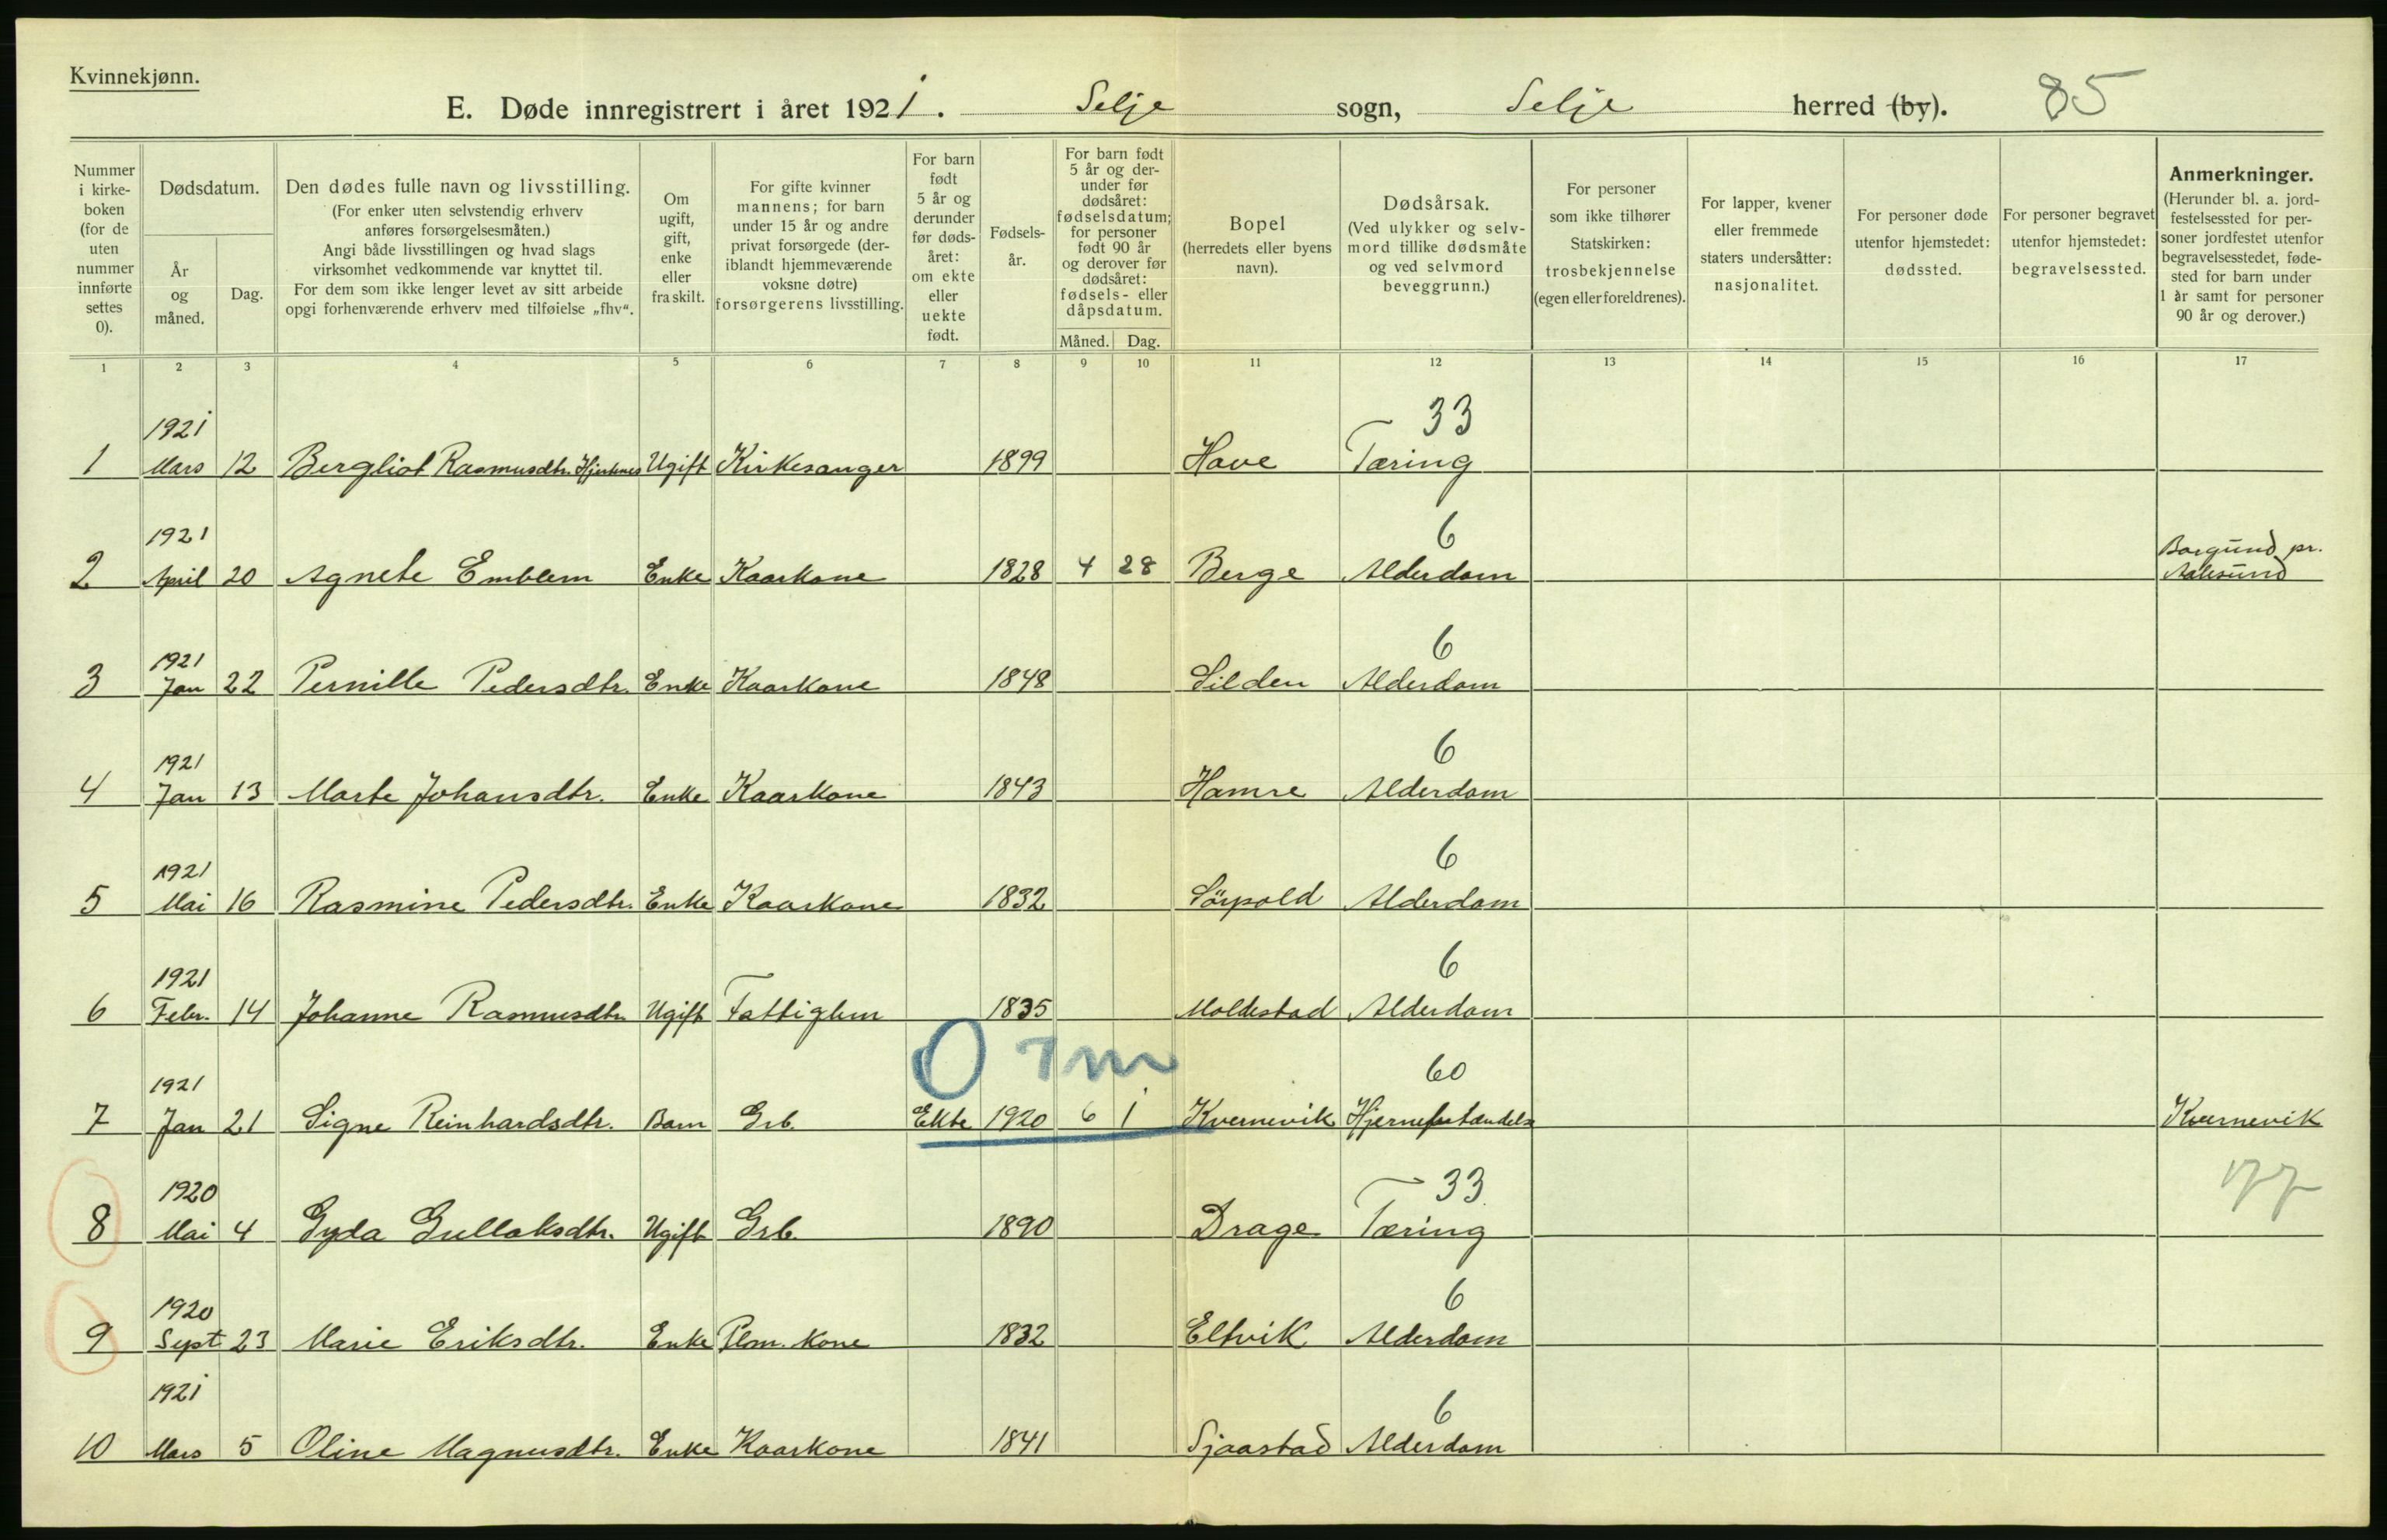 Kvinnekjønn.
E. Døde innregistrert i året 1921. Selje sogn, Selje herred (by). 85
Nummer i kirkeboken (for de uten nummer innførte settes 0).
Dødsdatum.
År og måned.
Dag.
Den dødes fulle navn og livsstilling.
(For enker uten selvstendig erhverv
anføres forsørgelsesmåten.)
Angi både livsstillingen og hvad slags
virksomhet vedkommende var knyttet til.
For dem som ikke lenger levet av sitt arbeide
opgi forhenværende erhverv med tilføielse „fhv“.
Om ugift, gift, enke eller fraskilt.
For gifte kvinner
mannens; for barn
under 15 år og andre
privat forsørgede (der-
iblandt hjemmeværende
voksne døtre)
forsørgerens livsstilling.
For barn født 5 år og derunder før døds-året: om ekte eller uekte født.
Fødsels-år.
For barn født
5 år og der-
under før
dødsåret:
fødselsdatum;
for personer
født 90 år
og derover før
dødsåret:
fødsels- eller
dåpsdatum.
Måned. Dag.
Bopel
(herredets eller byens
navn).
Dødsårsak.
(Ved ulykker og selv-
mord tillike dødsmåte
og ved selvmord
beveggrunn.)
For personer
som ikke tilhører
Statskirken:
trosbekjennelse
(egen eller foreldrenes).
For lapper, kvener
eller fremmede
staters undersåtter:
nasjonalitet.
For personer døde
utenfor hjemstedet:
dødssted.
For personer begravet
utenfor hjemstedet:
begravelsessted.
Anmerkninger.
(Herunder bl. a. jord-
festelsessted for per-
soner jordfestet utenfor
begravelsesstedet, føde-
sted for barn under
1 år samt for personer
90 år og derover.)
1 2 3 4 5 6 7 8 9 10 11 12 13 14 15 16 17
1921 33
1 Mars 12 Bergliot Rasmusdtr. Hjertnes Ugift Kirkesanger 1899 Hove Tæring
1921 6 Borgund pr.
2 April 20 Agnete Emblem Enke Kaarkone 1828 4 28 Berge Alderdom Aalesund
1921 6
3 Jan 22 Pernille Pedersdtr. Enke Kaarkone 1848 Silden Alderdom
1921 6
4 Jan 13 Marte Johansdtr. Enke Kaarkone 1843 Hamre Alderdom
1921 6
5 Mai 16 Rasmine Pedersdtr. Enke Kaarkone 1832 Sörpold Alderdom
1921 6
6 Febr. 14 Johanne Rasmusdtr. Ugift Fattiglem 1835 Moldestad Alderdom
0 7 m
1921 60
7 Jan 21 Signe Reinhardsdtr. Barn Grb. Ekte 1920 6 1 Kvernevik Hjernebetændelse Kvernevik
1920 33 177
8 Mai 4 Gyda Gullaksdtr. Ugift Grb. 1890 Drage Tæring
1920 6
9 Sept. 23 Marie Eriksdtr. Enke Plm. kone 1832 Eltvik Alderdom
1921 6
10 Mars 5 Oline Magnusdtr. Enke Kaarkone 1841 Sjaastad Alderdom